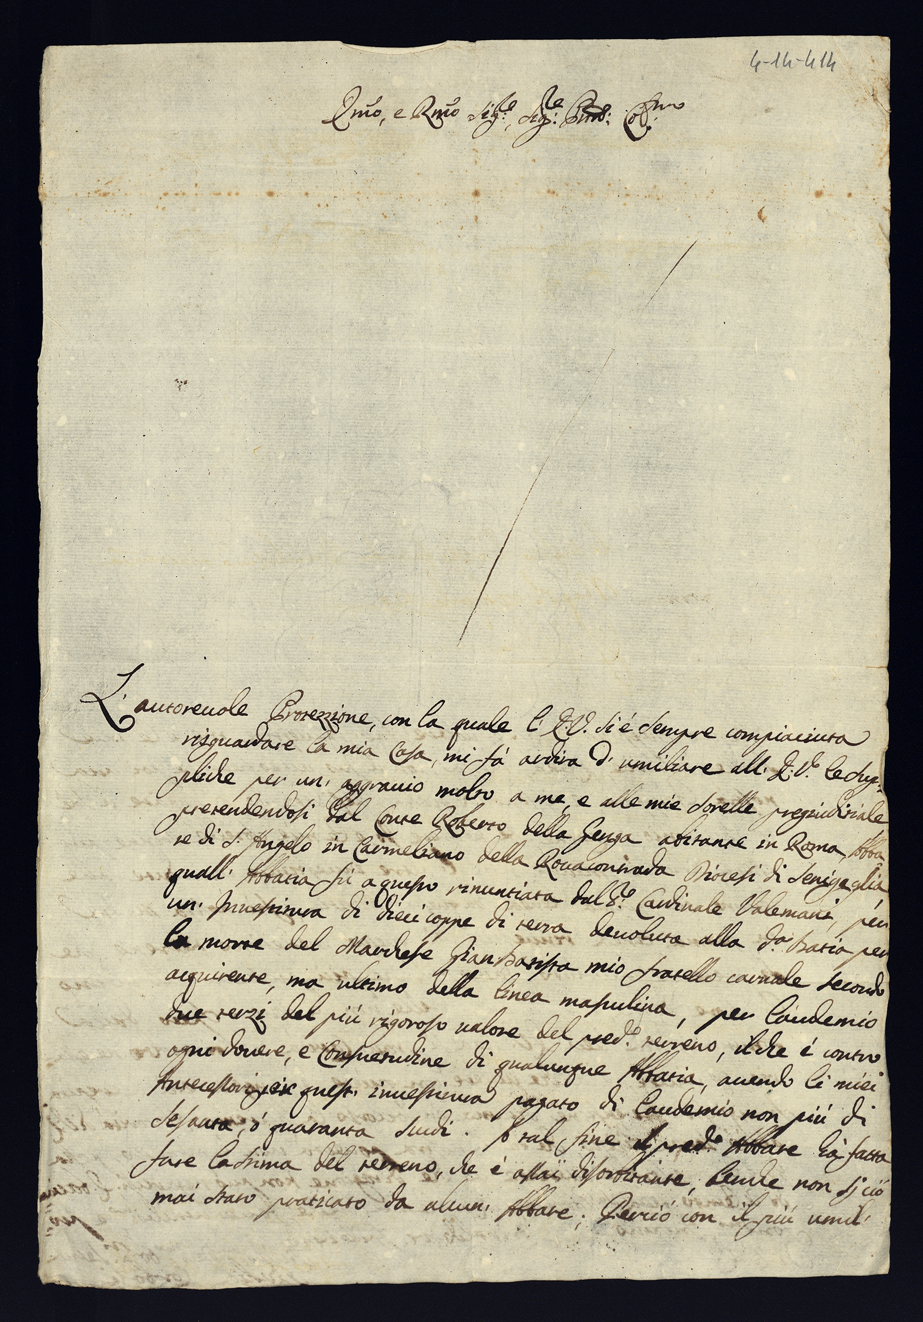 4-14-414
Emo, e Rmo Sigre, Sigre Prone: Colmo
L'autoreuole Protezzione, con la quale l'E.V. si é sempre compiaciuta
risguardare la mia Casa, mi fá ardira d'umiliare all'E.V. le sup=
pliche per un' aggrauio molto a me, e alle mie sorelle pregiudiziale
pretendendosi dal Conte Roberto della Genga abitante in Roma Abba
te di S. Angelo in Carmeliano della Roccacontrada Diocesi di Senigaglia
quall' Abbatia fú a questo rinuntiata dal Sre Cardinale Valemani per
un' Inuestitura di dieci coppe di terra deuoluta alla da Batia per
la morte del Marchese Gian Batista mio fratello carnale secondo
acquirente, ma ultimo della linea masculina, per laudemio
due terzi del piú rigoroso ualore del predo terreno, il che é contro
ogni douere, e Consuetudine di qualunque Abbatia, auendo li miei
Antecessori per quest' inuestitura pagato di laudemio non piú di
sessanta, ó quaranta scudi. A tal fine il predo Abbate há fatta
fare la stima del terreno, che é assai disorbitante, benche non si ció
mai stato praticato da alcun' Abbate; Perció con il piú umil'